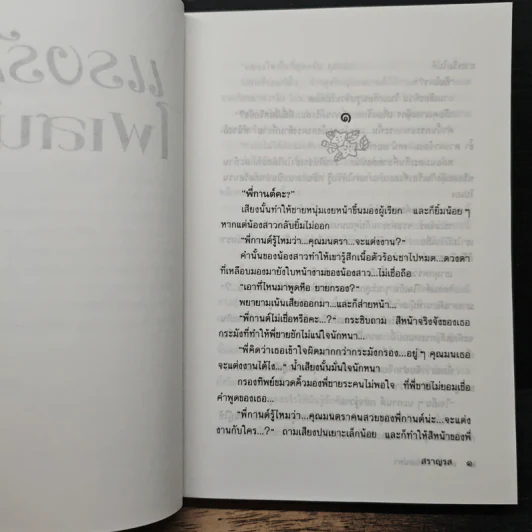 แรงรั
ไฟเสน่
๑
“พี่กานต์คะ?”
เสียงนั้นทำให้ชายหนุ่มเงยหน้าขึ้นมองผู้เรียก และก็ยิ้มน้อยๆ
หากแต่น้องสาวกลับยิ้มไม่ออก
“พี่กานต์รู้ไหมว่า...คุณมนตรา...จะแต่งงาน?”
คำนั้นของน้องสาวทำให้เขารู้สึกเนื้อตัวร้อนชาไปหมด...ดวงตา
ที่เหลือบมองมายังใบหน้างามของน้องสาว...ไม่เชื่อถือ
“เอาที่ไหนมาพูดหือ ยายกรอง?”
พยายามเน้นเสียงออกมา...และก็ส่ายหน้า...
“พี่กานต์ไม่เชื่อหรือคะ...?” กระซิบถาม สีหน้าจริงจังของเธอ
กระมังที่ทำให้พี่ชายชักไม่แน่ใจนักหนา...
“พี่คิดว่าเธอเข้าใจผิดมากกว่ากระมังกรอง...อยู่ๆ คุณมนเธอ
จะแต่งงานได้ไง...” น้ำเสียงนั้นมั่นใจนักหนา
กรองทิพย์ขมวดคิ้วมองพี่ชายระคนไม่พอใจ ที่พี่ชายไม่ยอมเชื่อ
คำพูดของเธอ...
“พี่กานต์รู้ไหมว่า...คุณมนตราคนสวยของพี่กานต์น่ะ...จะแต่ง
งานกับใคร...?” ถามเสียงปนเยาะเล็กน้อย และก็ทำให้สีหน้าของพี่
สราญรส ๑